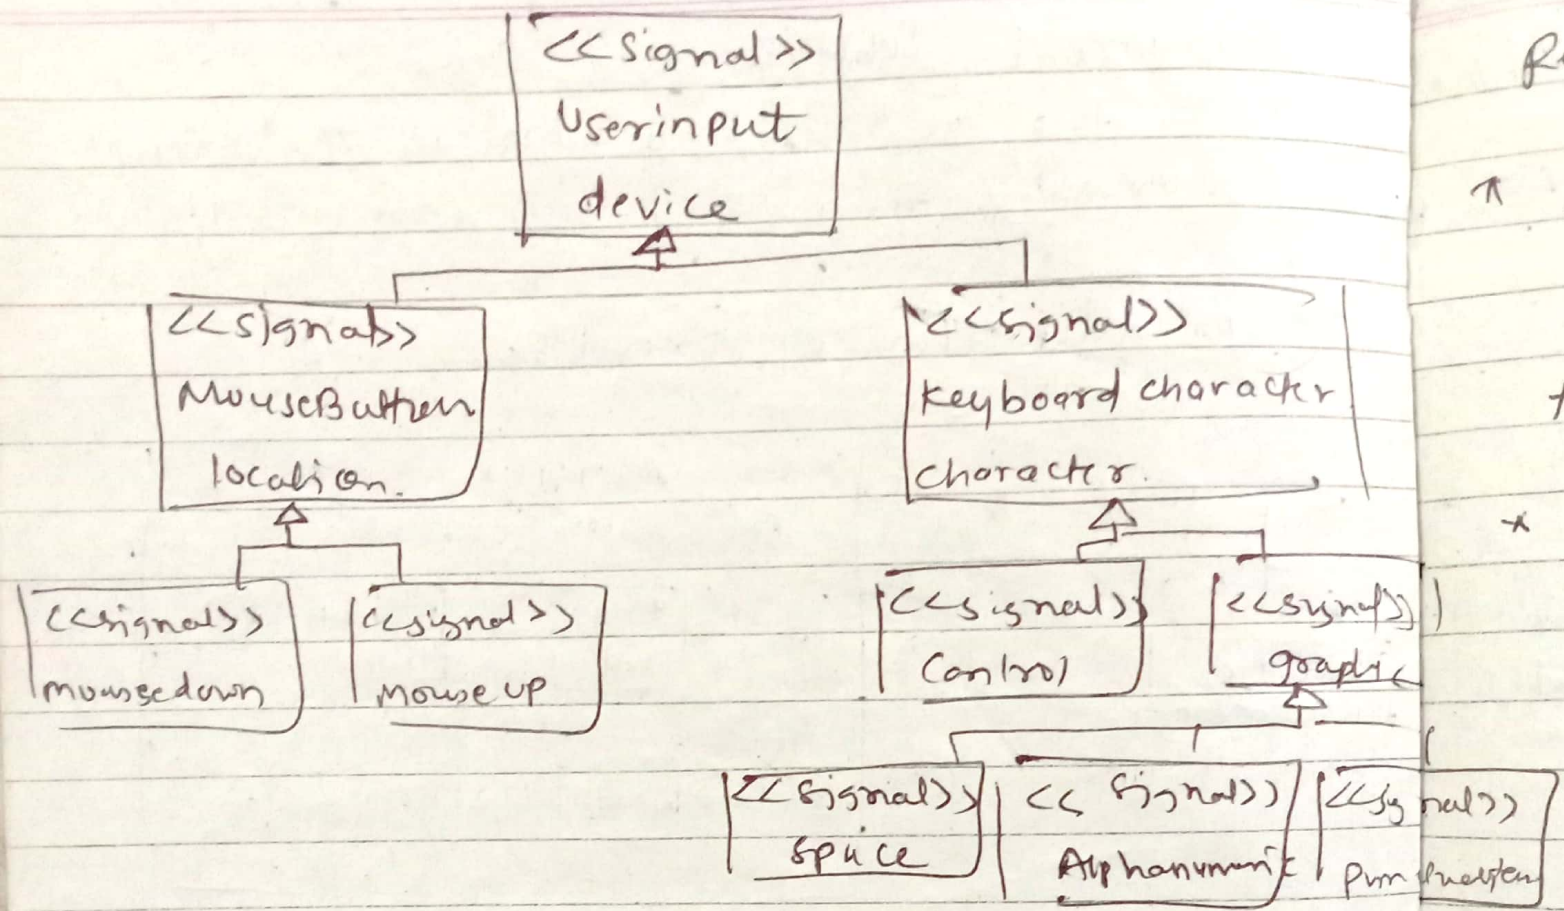 <<signal>>
Userinput
device
<<signal>>
MouseButton
location.
<<signal>>
Keyboard character
character.
<<signal>>
mousedown
<<signal>>
mouse up
<<signal>>
Control
<<signal>>
graphic
<<signal>>
space
<<signal>>
Alphanumeric
<<signal>>